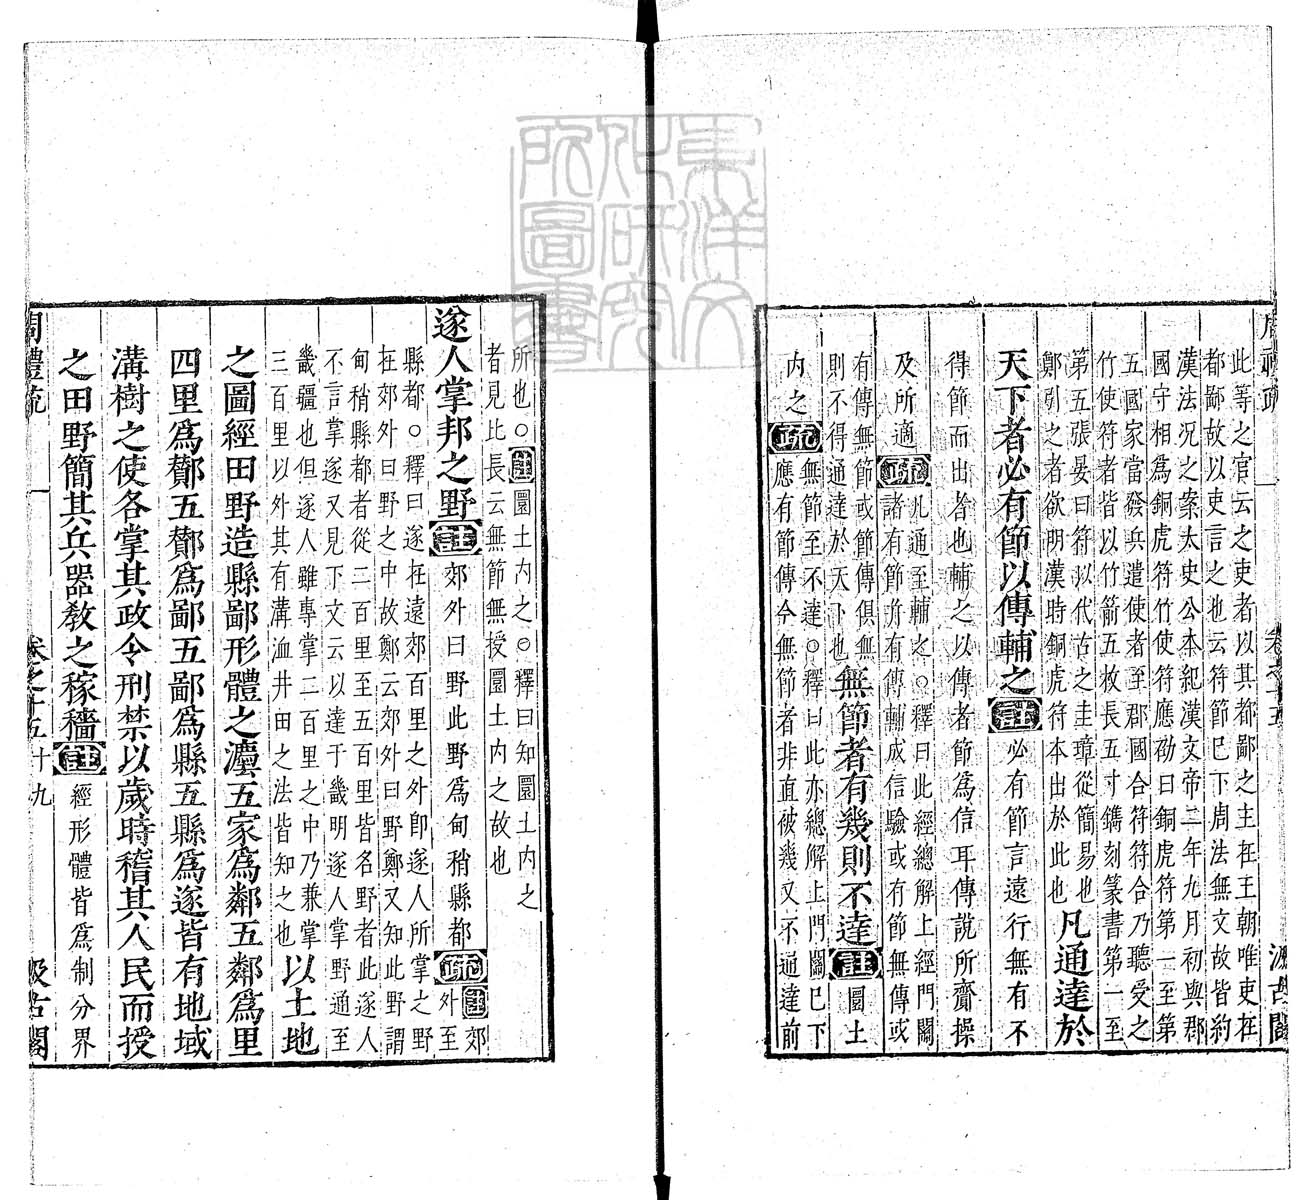 周禮疏 一 卷之十五 汲古閣
此等之官云之吏者以其都鄙之主在王朝唯吏在
都鄙故以吏言之也云符節已下周法無文故皆約
漢法況之案太史公本紀漢文帝二年九月初與郡
國守相爲銅虎符竹使符應劭曰銅虎符第一至第
五國家當發兵遣使者至郡國合符符合乃聽受之
竹使符者皆以竹箭五枚長五寸鐫刻篆書第一至
第五張晏曰符以代古之圭璋從簡易也
鄭引之者欲明漢時銅虎符本出於此也
凡通達於
天下者必有節以傳輔之 註 必有節言遠行無有不
得節而出者也輔之以傳者節爲信耳傳說所齎操
及所適 疏
凡通至輔之○釋曰此經總解上經門關
諸有節亦有傳輔成信驗或有節無傳或
有傳無節或節傳俱無
則不得通達於天下也
無節者有幾則不達 註 圜土
內之 疏
無節至不達○釋曰此亦總解上門關已下
應有節傳今無節者非直被幾又不通達前
所也○註圜土內之○釋曰知圜土內之
者見比長云無節無授圜土內之故也
遂人掌邦之野 註 郊外曰野此野爲甸稍縣都 疏
註郊
外至
縣都○釋曰遂在遠郊百里之外卽遂人所掌之野
在郊外曰野之中故鄭云郊外曰野鄭又知此野謂
甸稍縣都者從二百里至五百里皆名野者此遂人
不言掌遂又見下文云以達于畿明遂人掌野通至
畿疆也但遂人雖專掌二百里之中乃兼掌
三百里以外其有溝洫井田之法皆知之也
以土地
之圖經田野造縣鄙形體之灋五家爲鄰五鄰爲里
四里爲酇五酇爲鄙五鄙爲縣五縣爲遂皆有地域
溝樹之使各掌其政令刑禁以歲時稽其人民而授
之田野簡其兵器敎之稼穡 註 經形體皆爲制分界
周禮疏 一 卷之十五 十九 汲古閣
東洋文化研究所圖書